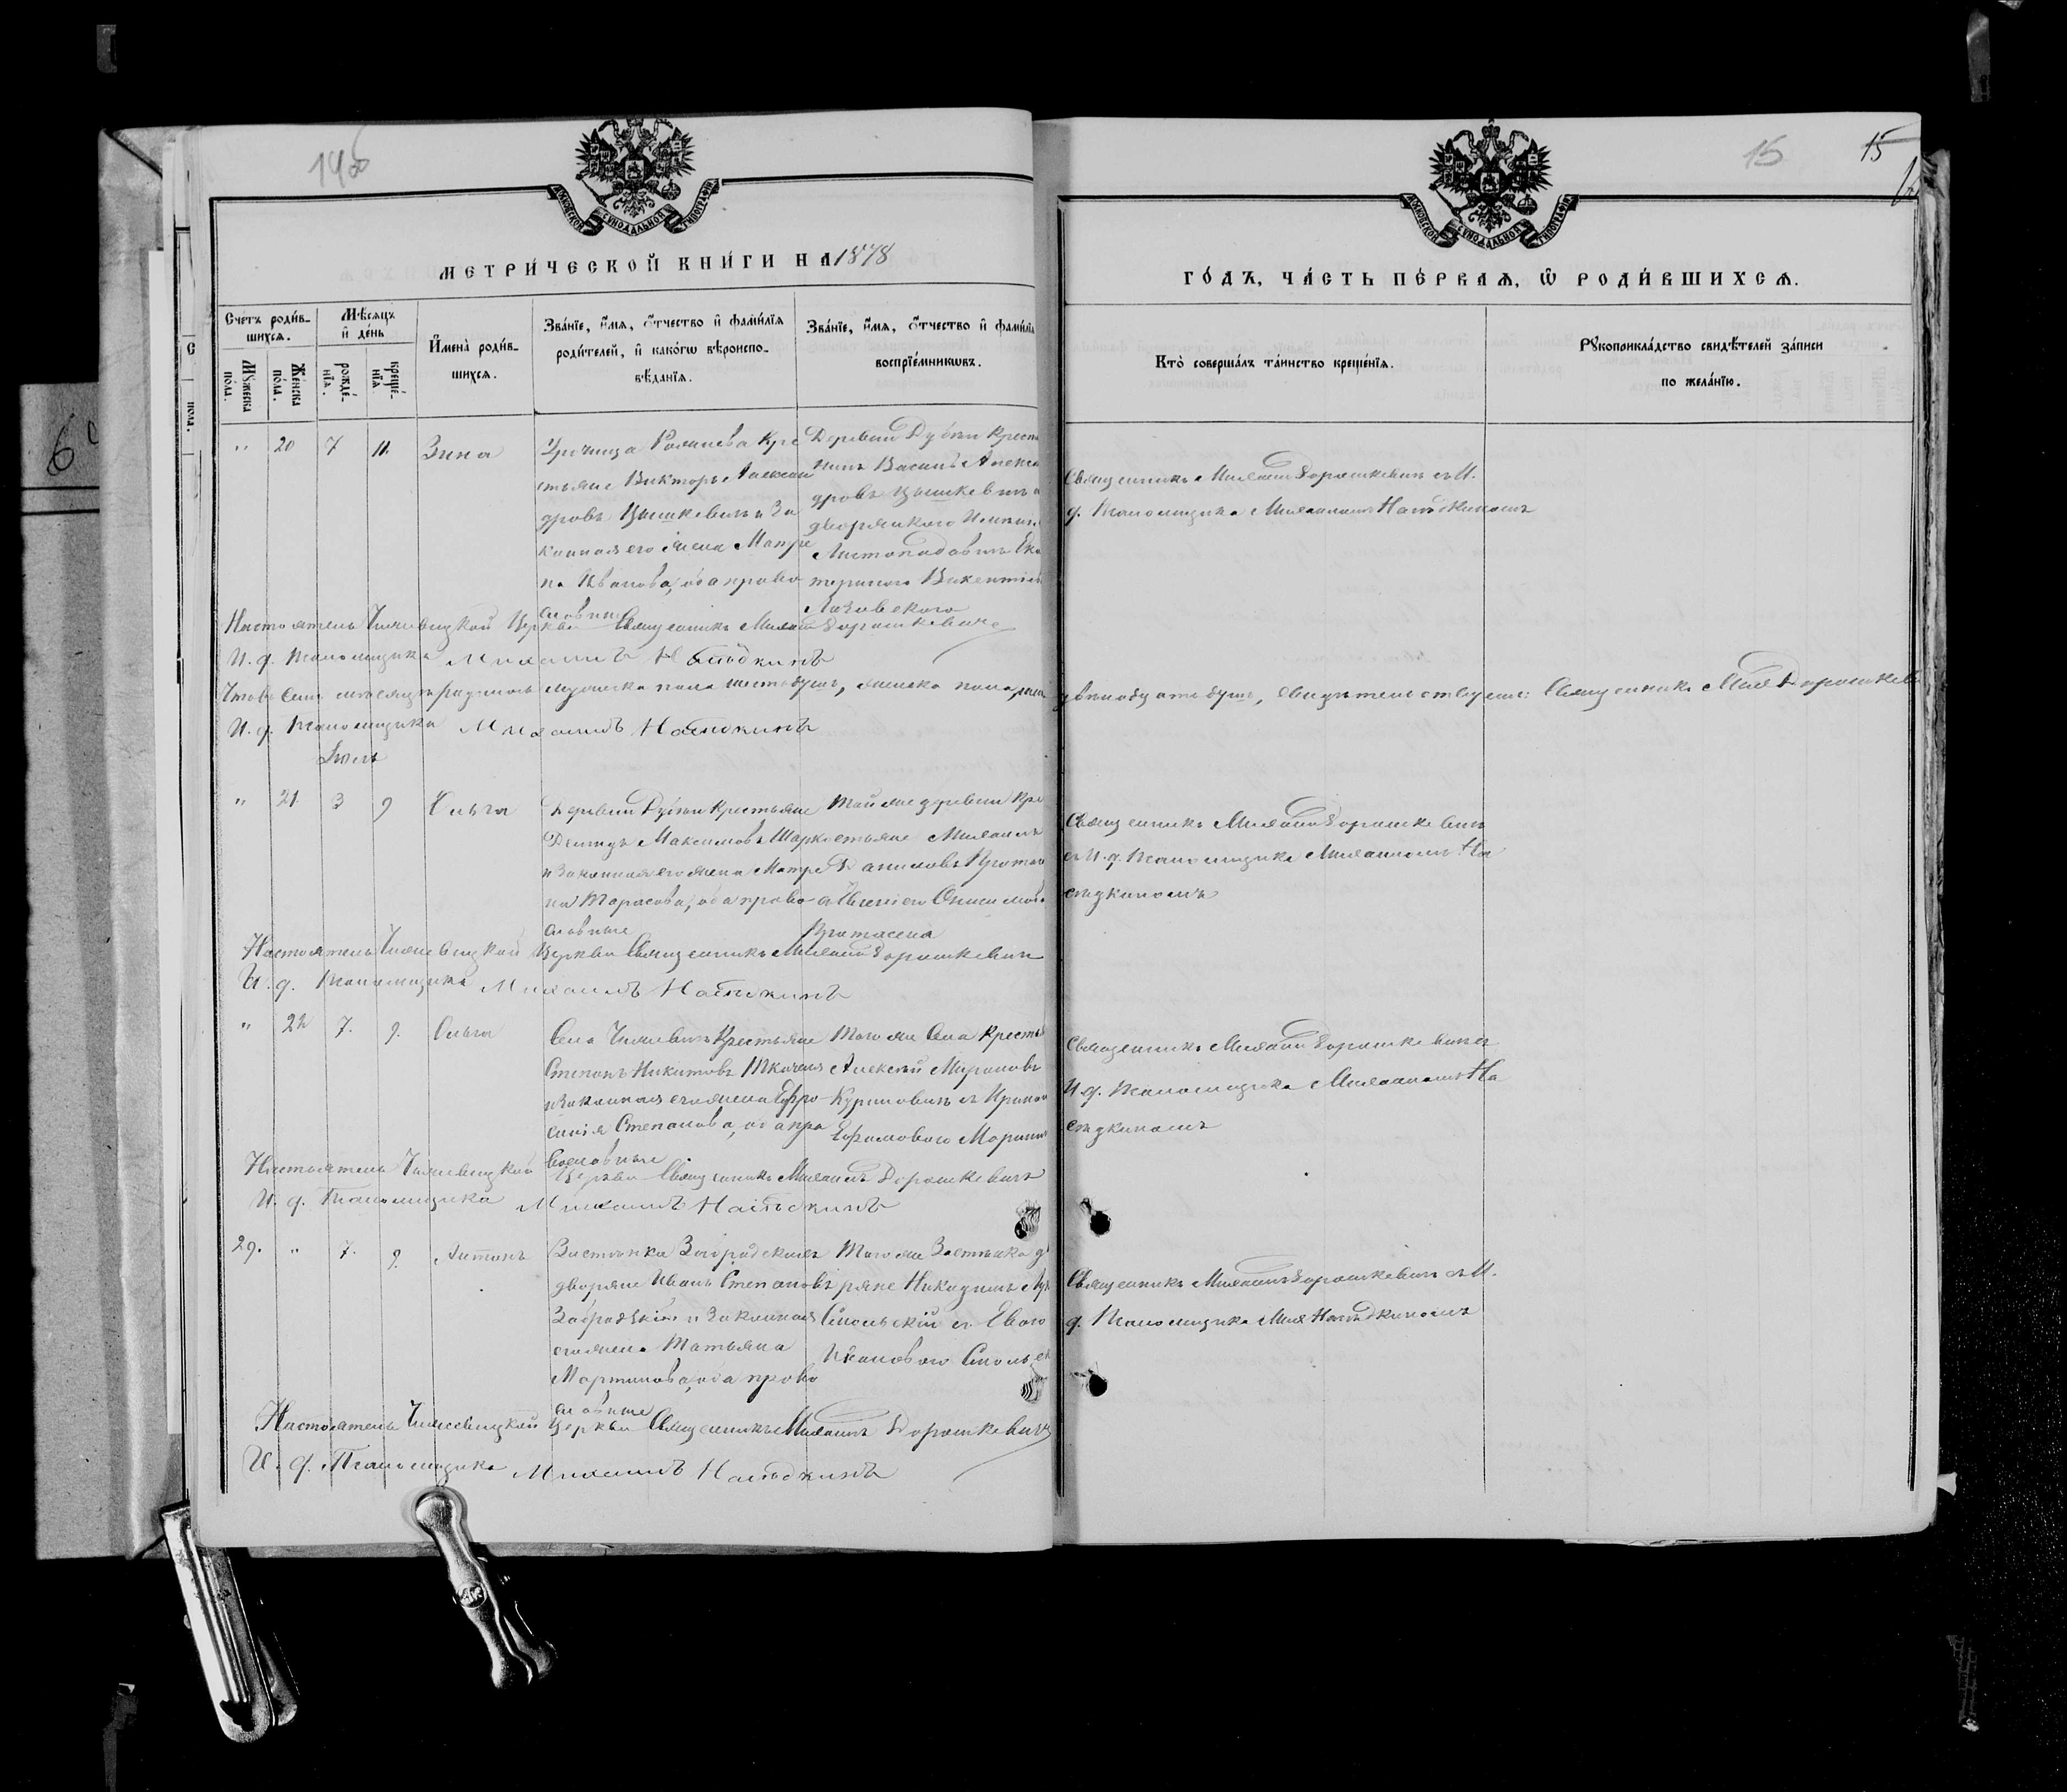 15
15
МЕТРИ́ЧЕСКОЙ КНИ́ГИ НА 1878
ГО́ДЪ, ЧА́СТЬ ПЕ́РВАѦ, Ѡ҆ РОДИ́ВШИХСѦ.
МОСКОВСКОЙ СѴНОДАЛЬНОЙ ТИПОГРАФІИ
МОСКОВСКОЙ СѴНОДАЛЬНОЙ ТИПОГРАФІИ
Сче́тъ роди́в-
шихсѧ.
Мꙋ́жеска
по́ла.
Же́нска
по́ла.
Мѣ́сѧцъ
и҆ де́нь
рожде́-
нїѧ.
креще́-
нїѧ.
И҆мена̀ роди́в-
шихсѧ.
Зва́нїе, и҆́мѧ, ѻ҆́тчество и҆ фами́лїѧ
роди́телей, и҆ како́гѡ вѣ́роиспо-
вѣ́данїѧ.
Зва́нїе, и҆́мѧ, ѻ҆́тчество и҆ фами́лїѧ
воспрїе́мникѡвъ.
Кто̀ соверша́лъ та́инство креще́нїѧ.
Рꙋкоприкла́дство свидѣ́телей за́писи
по жела́нїю.
" 20 7 11. Зина
Урочища Кре
стьяне Викторъ Алексан
дровъ Цышкевичъ и За
конная его жена Матре
на Иванова, оба право
славные
Деревни Дубни Крестья
нинъ Василь Алекса
дровъ Цышкевичъ и
дворянкою
Ека
териною Викентіев
Лазовскою
Священникъ Михаилъ Дорошкевичъ съ И.
д. Псаломщика Михаиломъ Насѣдкиномъ
Настоятель Церкви Священникъ Михаилъ Дорошкевичъ
И. д. Псаломщика Михаилъ Насѣдкинъ
Что въ семъ мѣсяцѣ родилось мужеска пола шесть душъ, женска пола
душъ, свидѣтельствуемъ: Священникъ Мих Дорошкев
И. д. Псаломщика Михаилъ Насѣдкинъ
Іюль
" 21 3 9 Ольга
Деревни Дубни Крестьяне
Демидъ Максимовъ Шарко
и Законная его жена Матре
на Тарасова, оба право
славные
Той же деревни Кре
стьяне Михаилъ
Даниловъ Протас
Онисимова
Протасеня
Священникъ Михаилъ Дорошкевичъ
съ И. д. Псаломщика Михаиломъ На
сѣдкиномъ
Настоятель Церкви Священникъ Михаилъ Дорошкевич
И. д. Псаломщика Михаилъ Насѣдкинъ
" 22 7. 9. Ольга
Села Крестьяне
Степанъ Никитовъ Ткаченя
и Законная его жена Ефро
синія Степанова, оба пра
вославные
Того же Села Крестья
Алексѣй Мироновъ
Куриловичъ съ Ириною
Ефимовою
Священникъ Михаилъ Дорошкевичъ съ
И. д. Псаломщика Михаиломъ На
сѣдкиномъ
Настоятель Церкви Священникъ Михаилъ Дорошкевичъ
И. д. Псаломщика Михаилъ Насѣдкинъ
29. " 7. 9. Антонъ
Застѣнка
дворяне Иванъ Степановъ
Забродскій и Законная
его жена Татьяна
Мартинова, оба право
славные
Того же Застѣнка д
ряне Никодимъ
Смольскій съ Евою
Ивановою Смольск
Священникъ Михаилъ Дорошкевичъ съ И.
д. Псаломщика Мих Насѣдкиномъ
Настоятель Церкви Священникъ Михаилъ Дорошкевичъ
И. д. Псаломщика Михаилъ Насѣдкинъ